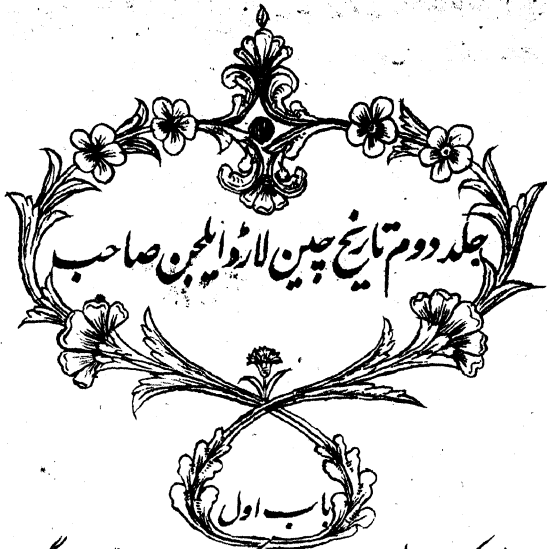 جلد دوم تاریخ چین لارڈ ایلجن صاحب
باب اول